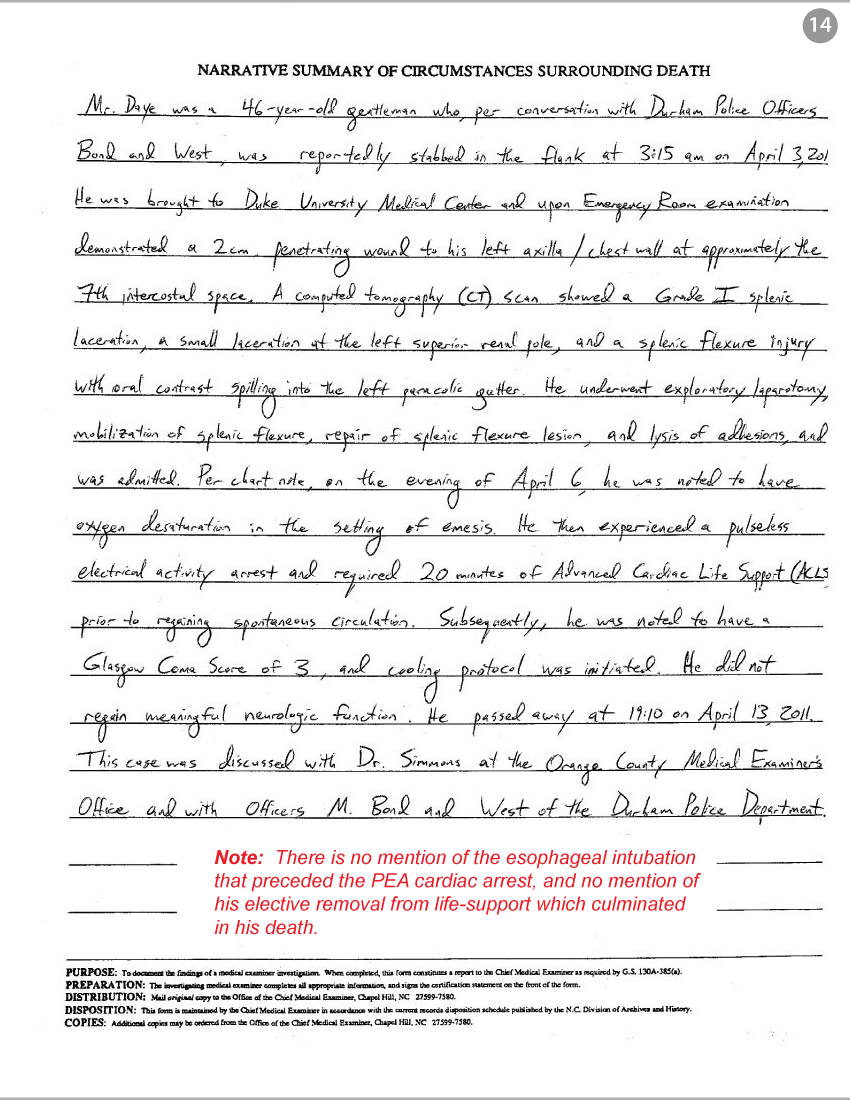 14
NARRATIVE SUMMARY OF CIRCUMSTANCES SURROUNDING DEATH
Mr. Daye was a 46-year-old gentleman who, per conversation with Durham Police Officers
Bond and West, was reportedly stabbed in the flank at 3:15 am on April 3, 201
He was brought to Duke University Medical Center and upon Emergency Room examination
demonstrated a 2cm penetrating wound to his left axilla / chest wall at approximately the
7th intercostal space. A computed tomography (CT) scan showed a Grade I splenic
laceration, a small laceration at the left superior renal pole, and a splenic flexure injury
with oral contrast spilling into the left paracolic gutter. He underwent exploratory laparotomy,
mobilization of splenic flexure, repair of splenic flexure lesion, and lysis of adhesions, and
was admitted. Per chart note, on the evening of April 6, he was noted to have
oxygen desaturation in the setting of emesis. He then experienced a pulseless
electrical activity arrest and required 20 minutes of Advanced Cardiac Life Support (ACLS
prior to regaining spontaneous circulation. Subsequently, he was noted to have a
Glasgow Coma Score of 3, and cooling protocol was initiated. He did not
regain meaningful neurologic function. He passed away at 19:10 on April 13, 2011.
This case was discussed with Dr. Simmons at the Orange County Medical Examiner's
Office and with Officers M. Bond and West of the Durham Police Department.
Note: There is no mention of the esophageal intubation
that preceded the PEA cardiac arrest, and no mention of
his elective removal from life-support which culminated
in his death.
PURPOSE: To document the findings of a medical examiner investigation. When completed, this form constitutes a report to the Chief Medical Examiner as required by G.S. 130A-385(a).
PREPARATION: The investigating medical examiner completes all appropriate information, and signs the certification statement on the front of the form.
DISTRIBUTION: Mail original copy to the Office of the Chief Medical Examiner, Chapel Hill, NC 27599-7580.
DISPOSITION: This form is maintained by the Chief Medical Examiner in accordance with the current records disposition schedule published by the N.C. Division of Archives and History.
COPIES: Additional copies may be ordered from the Office of the Chief Medical Examiner, Chapel Hill, NC 27599-7580.